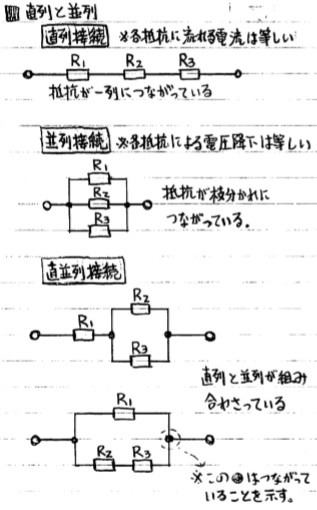 直列と並列
直列接続 ※各抵抗に流れる電流は等しい
R1 R2 R3
抵抗が一列につながっている
並列接続 ※各抵抗による電圧降下は等しい
R1
R2
R3
抵抗が枝分かれに
つながっている。
直並列接続
R2
R1
R3
直列と並列が組み
合わさっている
R1
R2 R3
※この●はつながって
いることを示す。